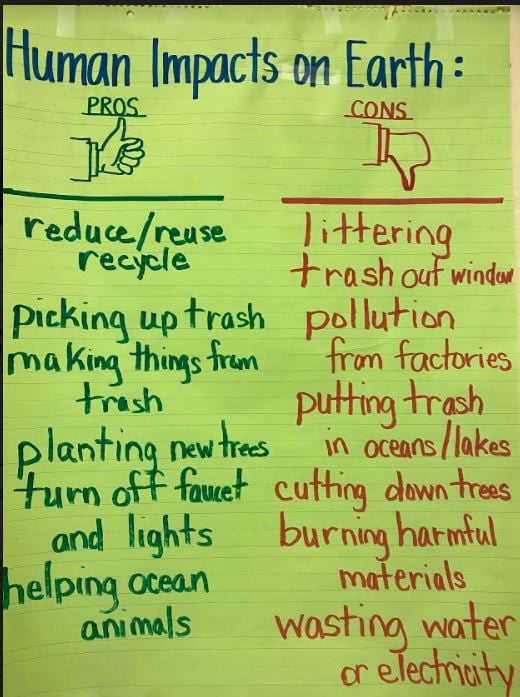 Human Impacts on Earth:
PROS
reduce/reuse
recycle
picking up trash
making things from
trash
planting new trees
turn off faucet
and lights
helping ocean
animals
CONS
littering
trash out window
pollution
from factories
putting trash
in oceans/lakes
cutting down trees
burning harmful
materials
wasting water
or electricity